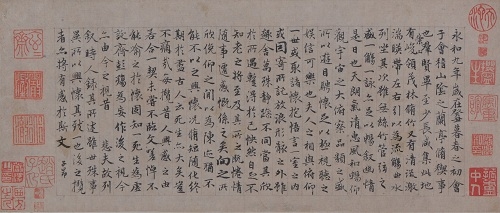 永和九年歲在癸丑暮春之初會
于會稽山陰之蘭亭脩禊事
也羣賢畢至少長咸集此地
有崇山峻領茂林脩竹又有清流激
湍暎帶左右引以為流觴曲水
列坐其次雖無絲竹管弦之
盛一觴一詠亦足以暢敘幽情
是日也天朗氣清惠風和暢仰
觀宇宙之大俯察品類之盛
所以遊目騁懷足以極視聽之
娛信可樂也夫人之相與俯仰
一世或取諸懷抱悟言一室之內
或因寄所託放浪形骸之外雖
趣舍萬殊靜躁不同當其欣
於所遇蹔得於己怏然自足不
知老之將至及其所之既惓情
隨事遷感慨係之矣向之所
欣俛仰之間以為陳迹猶不
能不以之興懷況脩短隨化終
期於盡古人云死生亦大矣豈
不痛哉每攬昔人興感之由
若合一契未嘗不臨文嗟悼不
能喻之於懷固知一死生為虛
誕齊彭殤為妄作後之視今
亦由今之視昔 悲夫故列
敘時人錄其所述雖世殊事
異所以興懷其致一也後之攬
者亦將有感於斯文 子昂